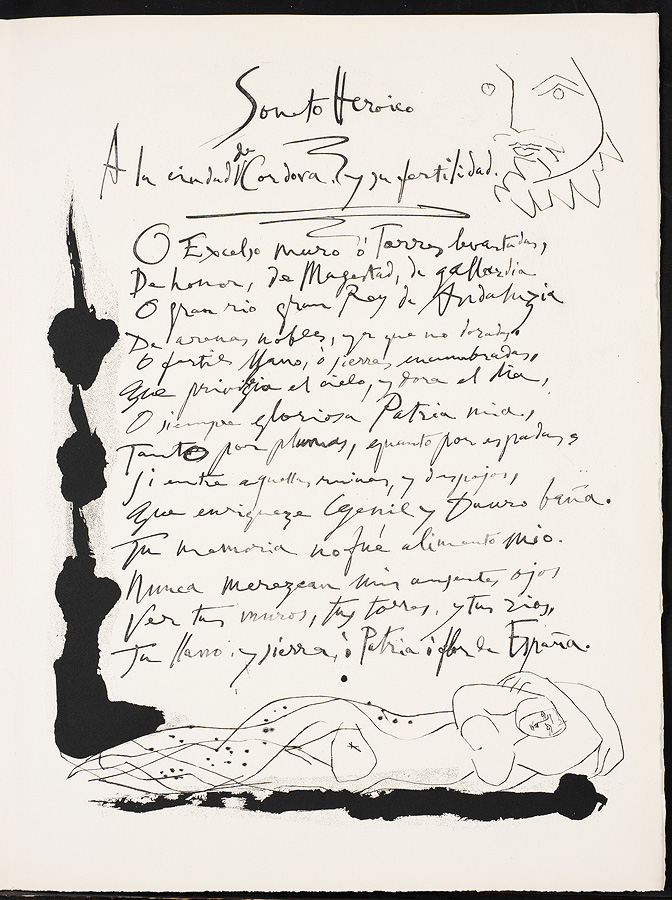 Soneto Heroico
A la ciudad de Cordova. y su fertilidad.
O Excelso muro ó Torres levantadas,
De honor, de Magestad, de gallardia
O gran rio gran Rey de Andaluzia
De arenas nobles, ya que no doradas.
O fertil llano, ó sierras encumbradas,
Que privilegia el cielo, y dora el dia,
O siempre gloriosa Patria mia,
Tanto por plumas, quanto por espadas,
Si entre aquellas ruinas, y despojos,
Que enriqueze Genil y Dauro baña.
Tu memoria no fué alimento mio.
Nunca merezcan mis ausentes ojos
Ver tus muros, tus torres, y tus rios,
Tu llano y sierra, ó Patria ó flor de España.